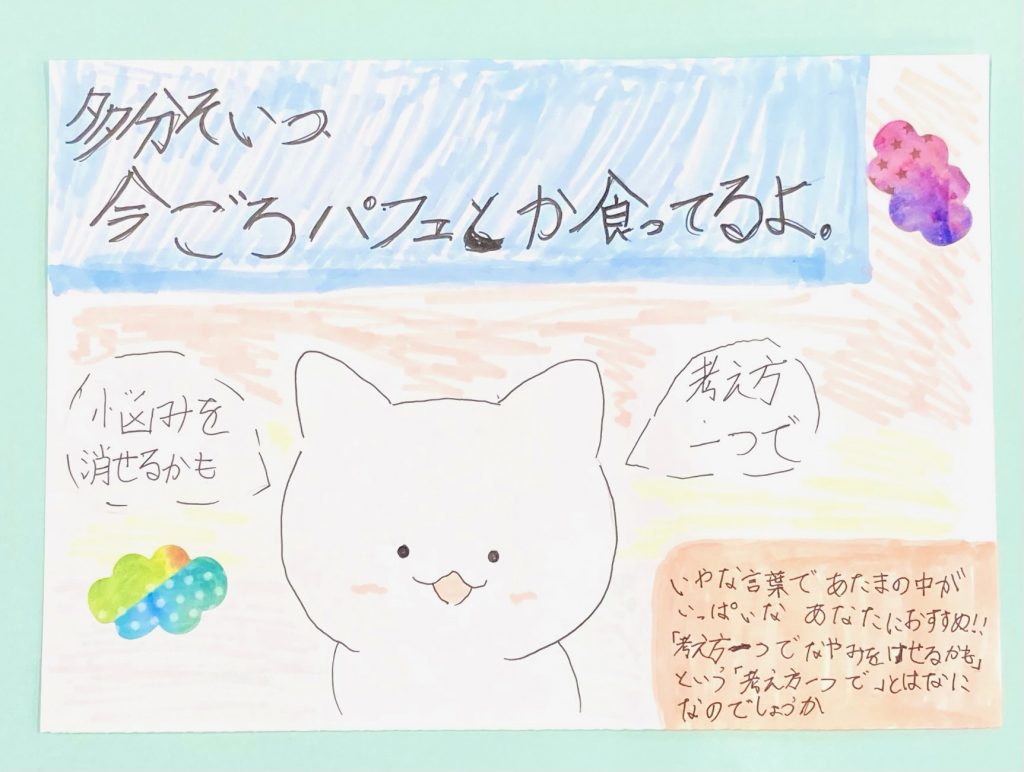 多分そいつ、
今ごろパフェとか食ってるよ。
考え方
一つで
悩みを
消せるかも
いやな言葉であたまの中が
いっぱいな あなたにおすすめ!!
「考え方一つでなやみをけせるかも」
という「考え方一つで」とはなに
なのでしょうか